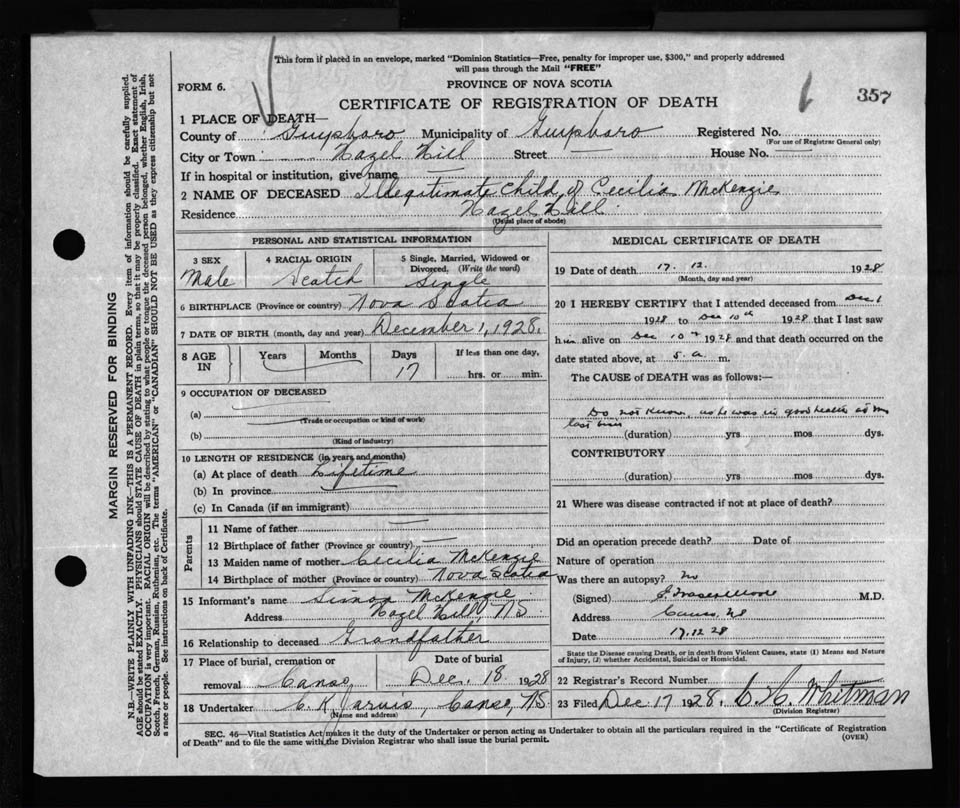 This form if placed in an envelope, marked "Dominion Statistics—Free, penalty for improper use, $300," and properly addressed
will pass through the Mail "FREE"
FORM 6.
PROVINCE OF NOVA SCOTIA
CERTIFICATE OF REGISTRATION OF DEATH
357
1 PLACE OF DEATH—
County of Guysboro Municipality of Guysboro Registered No.
(For use of Registrar General only)
City or Town Hazel Hill Street — House No. —
If in hospital or institution, give name —
2 NAME OF DECEASED Illegitimate Child of Cecilia McKenzie
Residence Hazel Hill
(Usual place of abode)
PERSONAL AND STATISTICAL INFORMATION
3 SEX Male
4 RACIAL ORIGIN Scotch
5 Single, Married, Widowed or Divorced, (Write the word) Single
6 BIRTHPLACE (Province or country) Nova Scotia
7 DATE OF BIRTH (month, day and year) December 1, 1928.
8 AGE IN Years Months Days 17 If less than one day, hrs. or min.
9 OCCUPATION OF DECEASED
(a)
(Trade or occupation or kind of work)
(b)
(Kind of industry)
10 LENGTH OF RESIDENCE (in years and months)
(a) At place of death Lifetime
(b) In province —
(c) In Canada (if an immigrant)
Parents
11 Name of father —
12 Birthplace of father (Province or country) —
13 Maiden name of mother Cecilia McKenzie
14 Birthplace of mother (Province or country) Nova Scotia
15 Informant's name Simon McKenzie
Address Hazel Hill, N.S.
16 Relationship to deceased Grandfather
17 Place of burial, cremation or removal Canso
Date of burial Dec. 18 1928
18 Undertaker C. K. Jarvis, Canso, N.S.
(Name and address)
MEDICAL CERTIFICATE OF DEATH
19 Date of death 17. 12. 1928
(Month, day and year)
20 I HEREBY CERTIFY that I attended deceased from Dec 1
1928 to Dec 10th 1928 that I last saw
him alive on Dec 10th 1928 and that death occurred on the
date stated above, at 5. a. m.
The CAUSE of DEATH was as follows:—
Do not know, as he was in good health at my
last visit
(duration) yrs mos dys.
CONTRIBUTORY
(duration) yrs mos dys.
21 Where was disease contracted if not at place of death?
Did an operation precede death? Date of
Nature of operation
Was there an autopsy? no
(Signed) J Fraser Moore M.D.
Address Canso, NS
Date 17.12 28
State the Disease causing Death, or in death from Violent Causes, state (1) Means and Nature
of Injury, (2) whether Accidental, Suicidal or Homicidal.
22 Registrar's Record Number
23 Filed Dec 17 1928, C. H. Whitman
(Division Registrar)
SEC. 46—Vital Statistics Act makes it the duty of the Undertaker or person acting as Undertaker to obtain all the particulars required in the "Certificate of Registration
of Death" and to file the same with the Division Registrar who shall issue the burial permit.
(OVER)
MARGIN RESERVED FOR BINDING
N.B.—WRITE PLAINLY WITH UNFADING INK—THIS IS A PERMANENT RECORD. Every item of information should be carefully supplied.
AGE should be stated EXACTLY. PHYSICIANS should STATE CAUSE OF DEATH in plain terms, so that it may be properly classified. Exact statement of
OCCUPATION is very important. RACIAL ORIGIN will be described by stating to what people or tongue the deceased person belonged, whether English, Irish,
Scotch, French, German, Russian, Ruthenian, etc. The terms "AMERICAN" or "CANADIAN" SHOULD NOT BE USED as they express citizenship but not
a race or people. See instructions on back of Certificate.